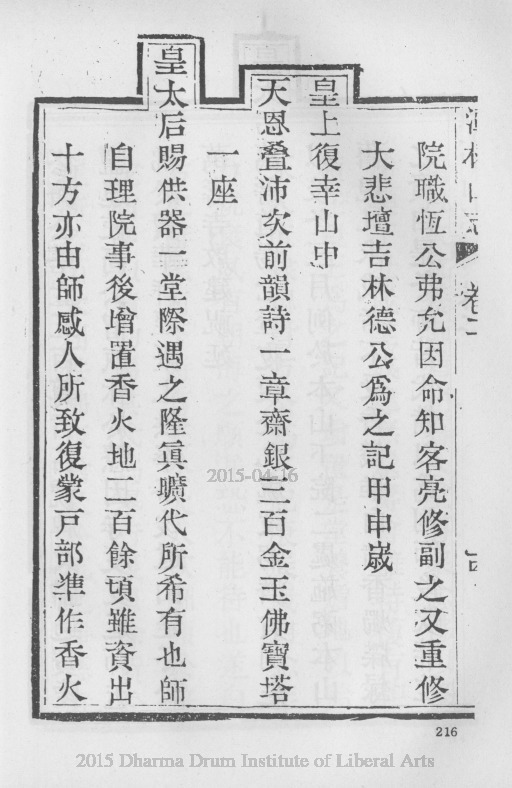 院職恆公弗允因命知客亮修副之又重修
大悲壇吉林德公爲之記甲申歲
皇上復幸山中
天恩疊沛次前韻詩一章齋銀三百金玉佛寶塔
一座
皇太后賜供器一堂際遇之隆眞曠代所希有也師
自理院事後增置香火地二百餘頃雖資出
十方亦由師感人所致復蒙戸部準作香火
2015-04-16
216
2015 Dharma Drum Institute of Liberal Arts